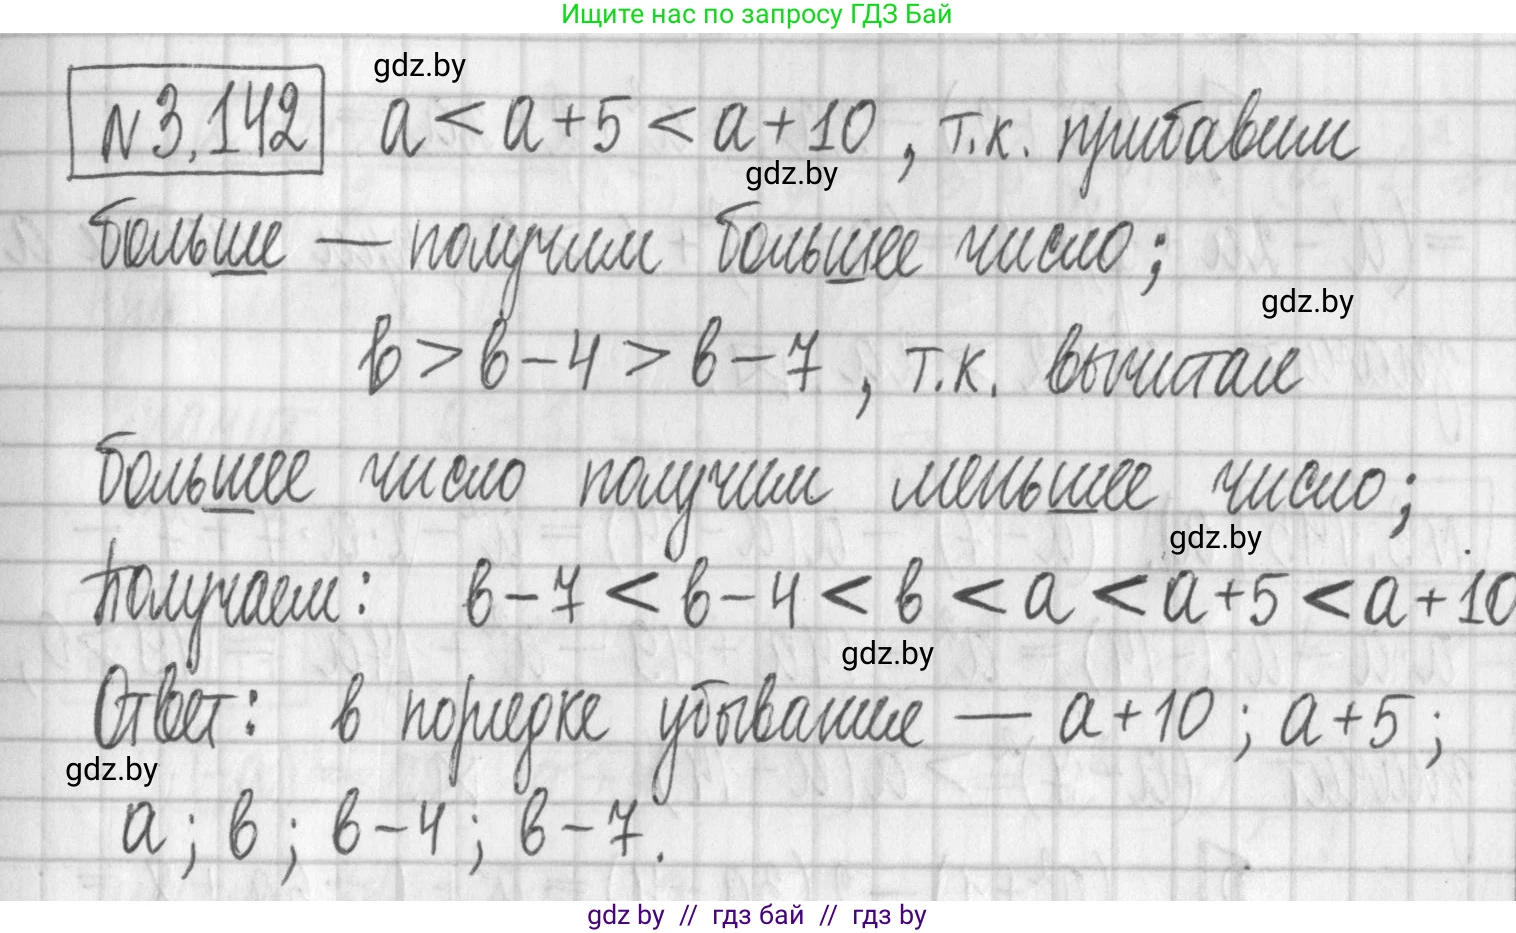 Ищите нас по запросу ГДЗ Бай
gdz.by
№3.142 a < a+5 < a+10, т.к. прибавим
gdz.by
больше — получим большее число;
gdz.by
в > в-4 > в-7, т.к. вычитая
большее число получим меньшее число;
gdz.by
Получаем: в-7 < в-4 < в < a < a+5 < a+10
gdz.by
Ответ: в порядке убывания — a+10; a+5;
gdz.by
a; в; в-4; в-7.
gdz by // гдз бай // гдз by